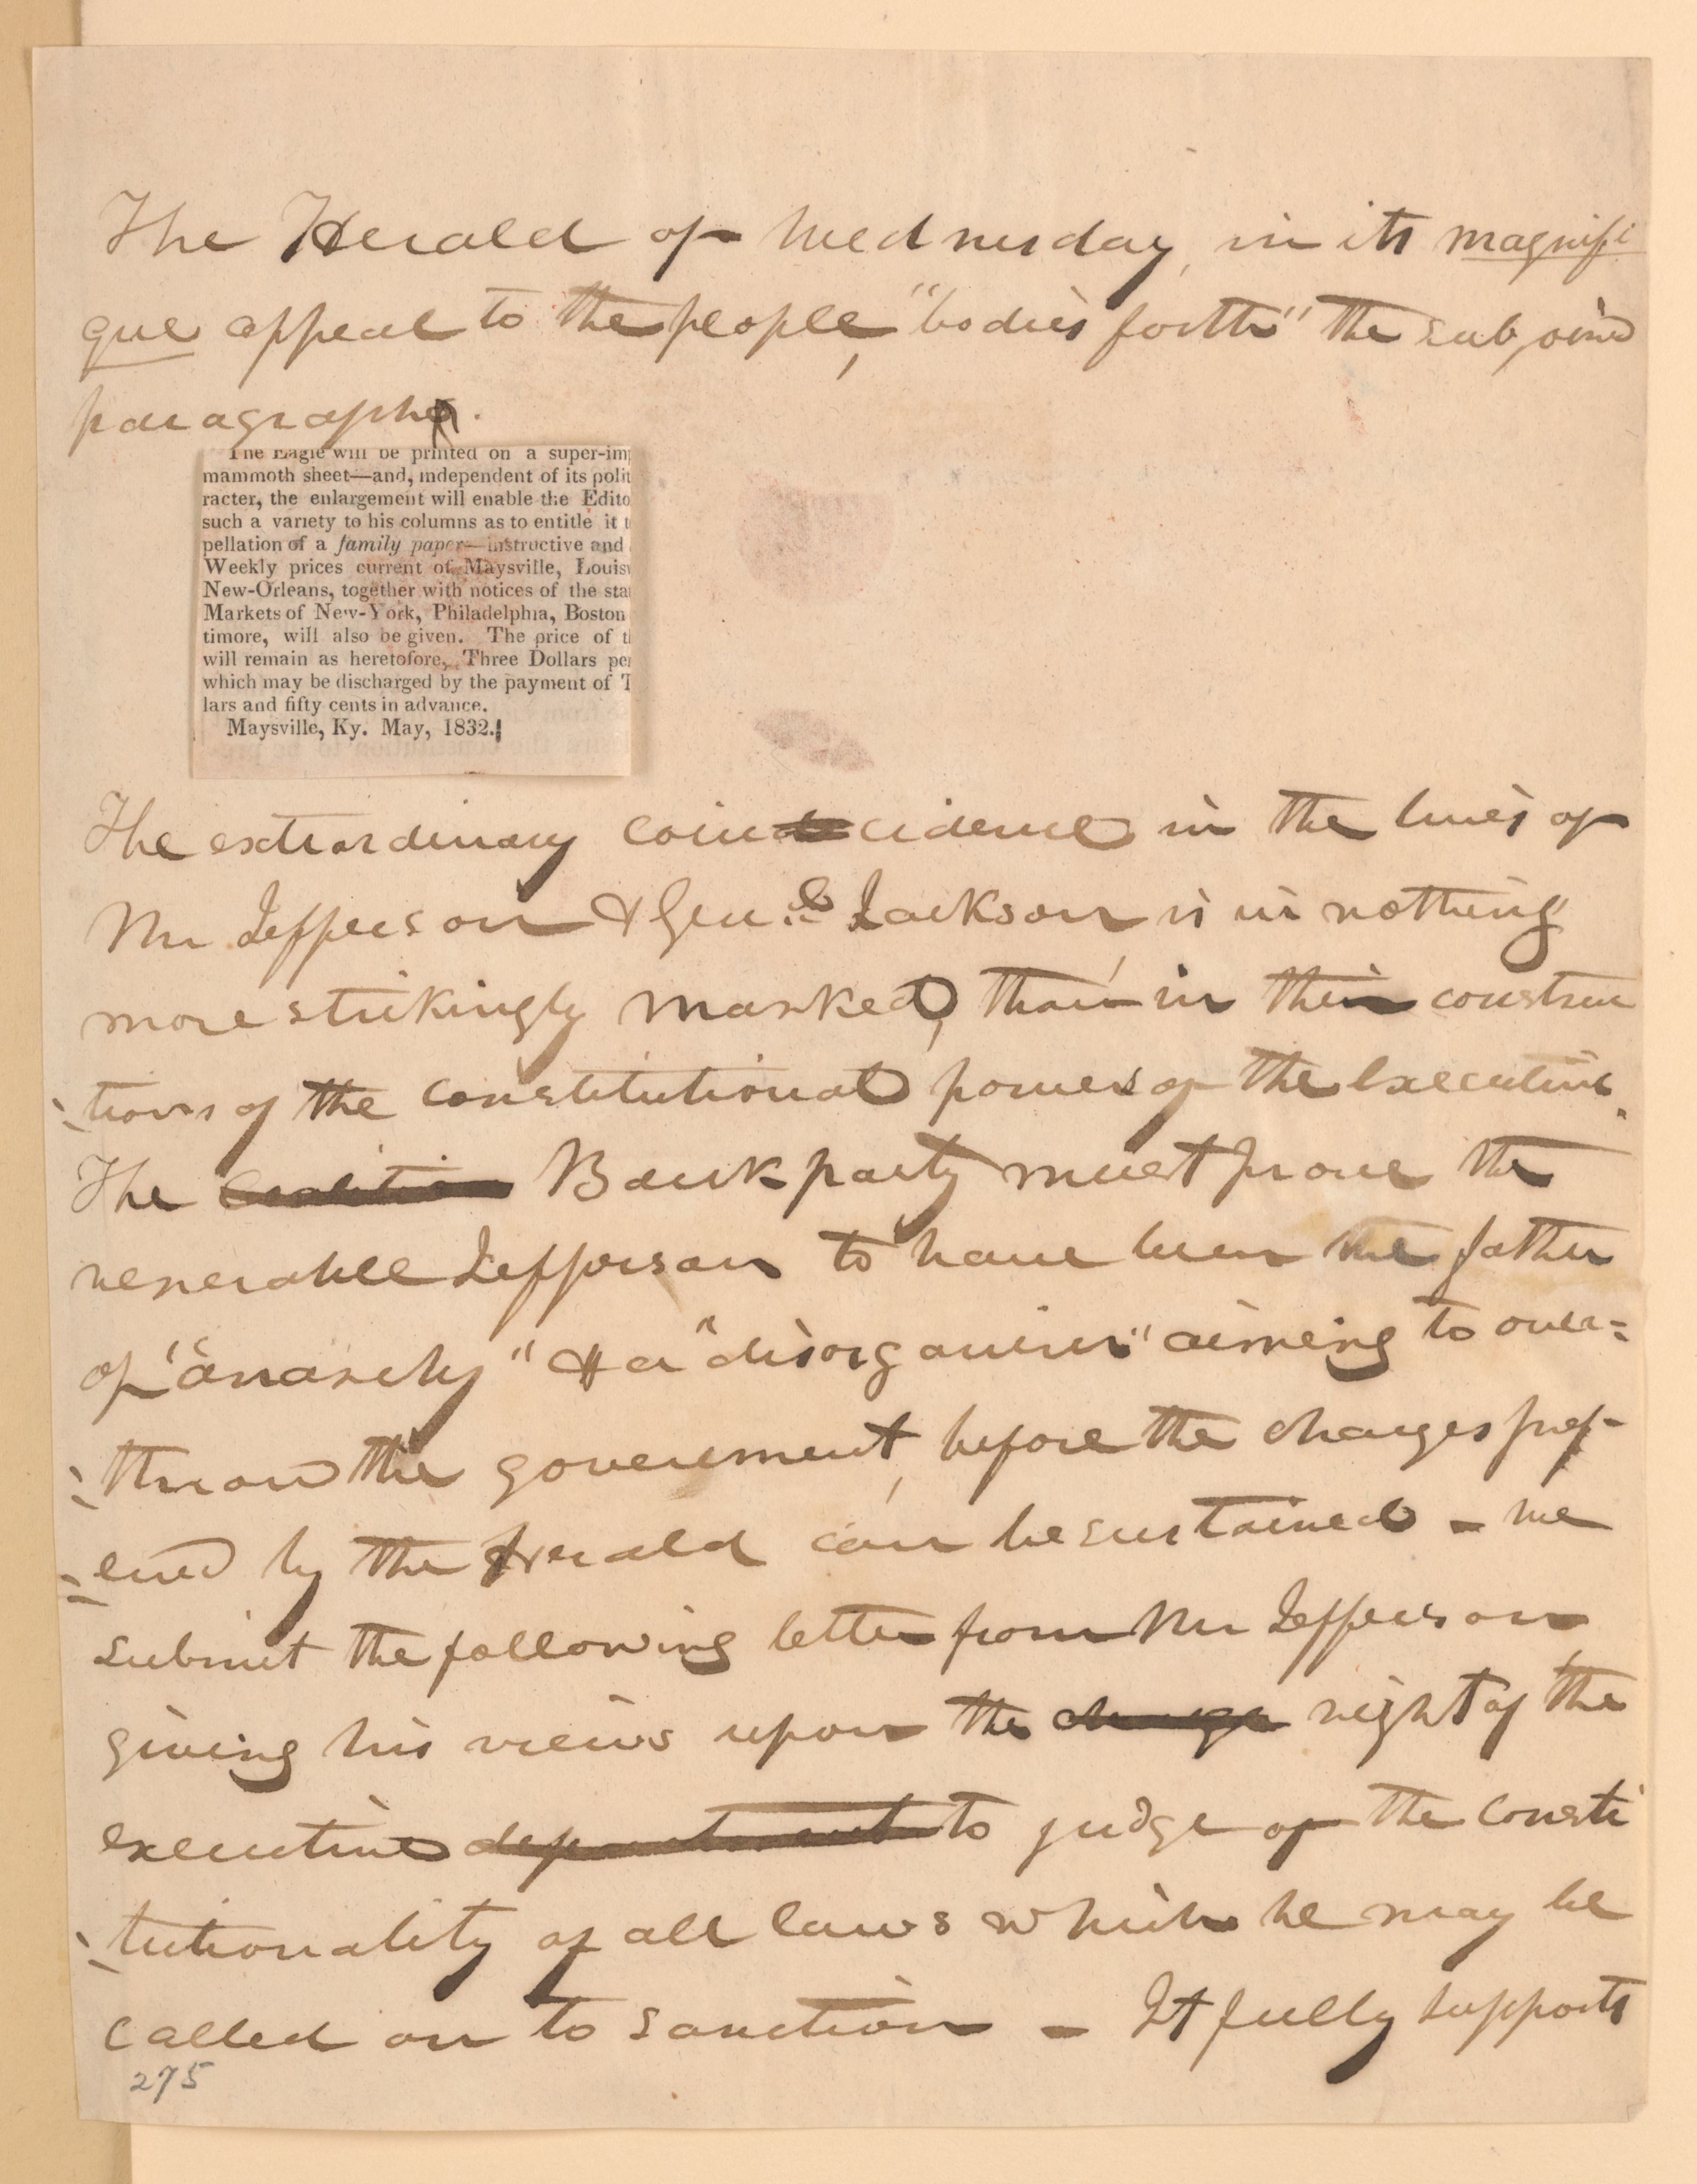 The Herald of Wednesday, in its magnifi
que appeal to the people, "bodies forth" the subjoined
paragraph.
The Eagle will be printed on a super-im
mammoth sheet—and, independent of its polit
racter, the enlargement will enable the Edito
such a variety to his columns as to entitle it t
pellation of a family paper—instructive and
Weekly prices current of Maysville, Louisv
New-Orleans, together with notices of the sta
Markets of New-York, Philadelphia, Boston
timore, will also be given. The price of t
will remain as heretofore, Three Dollars per
which may be discharged by the payment of T
lars and fifty cents in advance.
Maysville, Ky. May, 1832.
The extraordinary coincidence in the lives of
Mr Jefferson & Genl Jackson is in nothing
more strikingly marked, than in their construc
-tions of the constitutional powers of the Executive.
The coalition Bank party must prove the
venerable Jefferson to have been the father
of "anarchy" & a "disorganizer" aiming to over=
-throw the government, before the charges pref-
=ered by the Herald can be sustained - we
submit the following letter from Mr Jefferson
giving his views upon the charge right of the
executive department to judge of the consti
-tutionality of all laws which he may be
called on to sanction - It fully supports
275